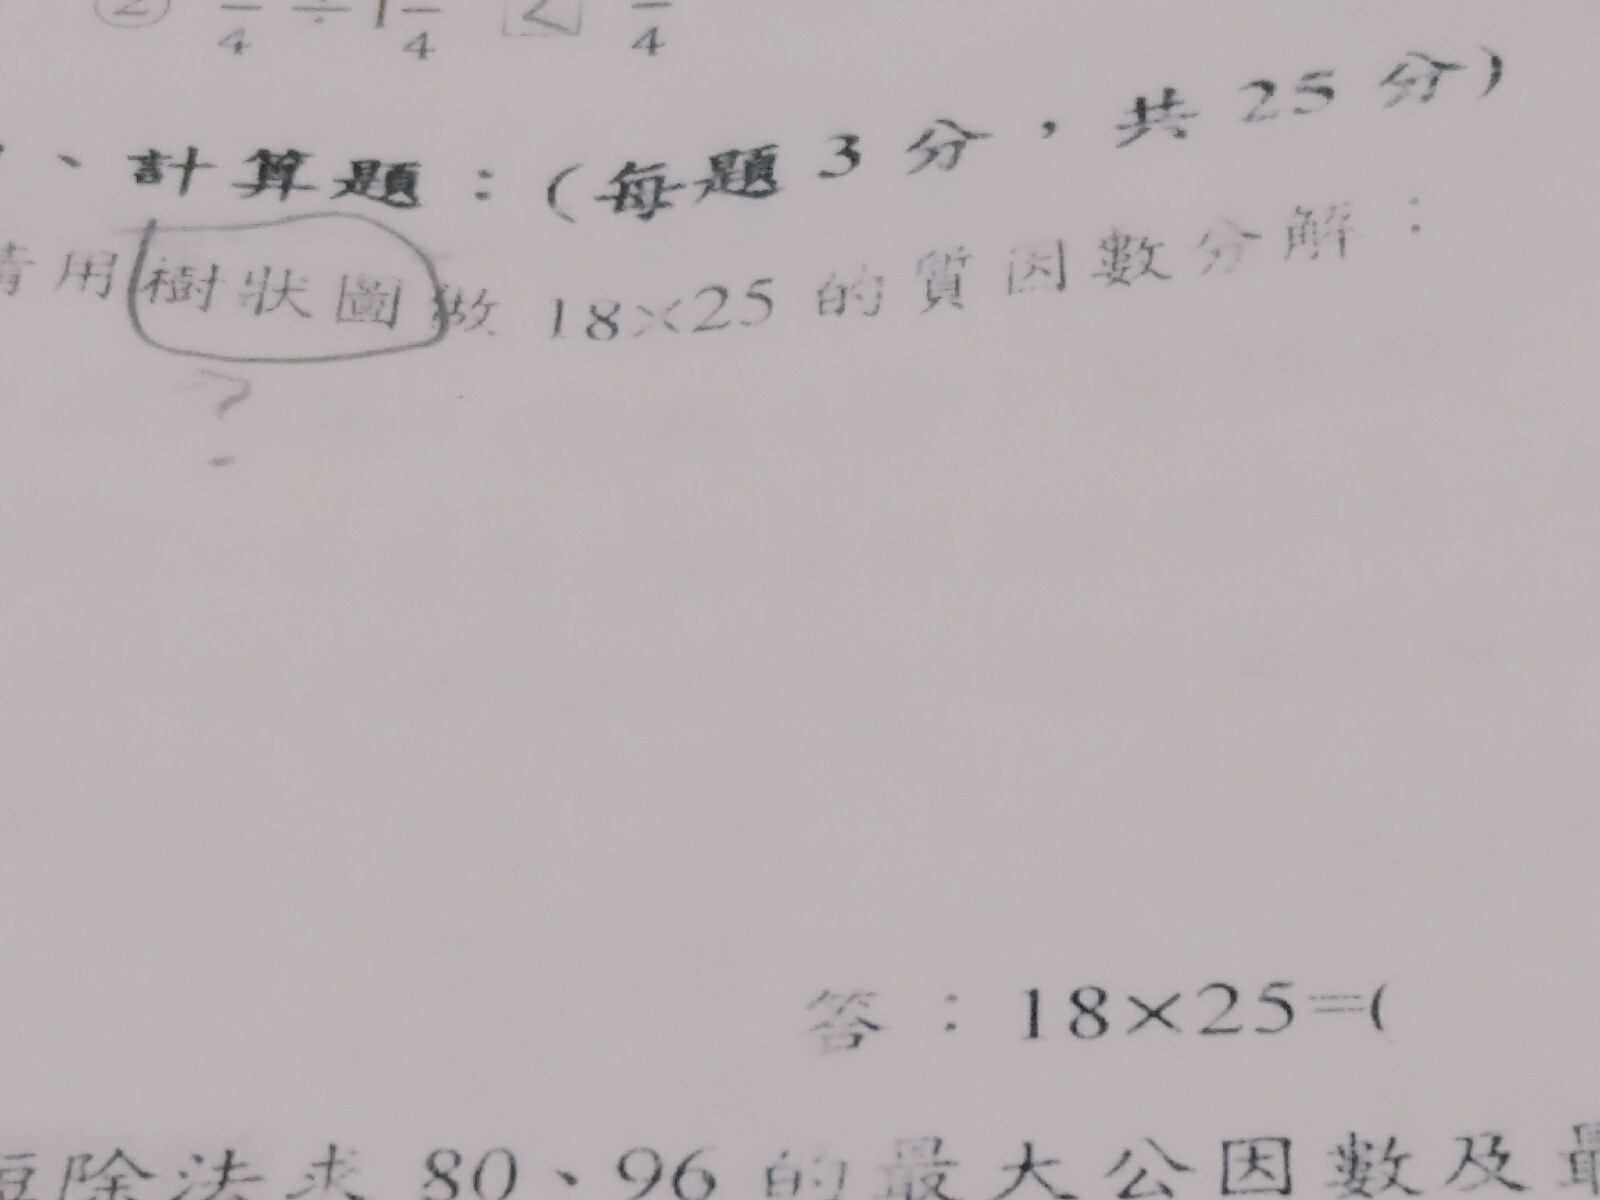 ② 4 ÷ 1 4 < 4
、計算題：(每題3分，共25分)
請用樹狀圖做 18×25 的質因數分解：
?
答：18×25=(
短除法求 80、96 的最大公因數及最